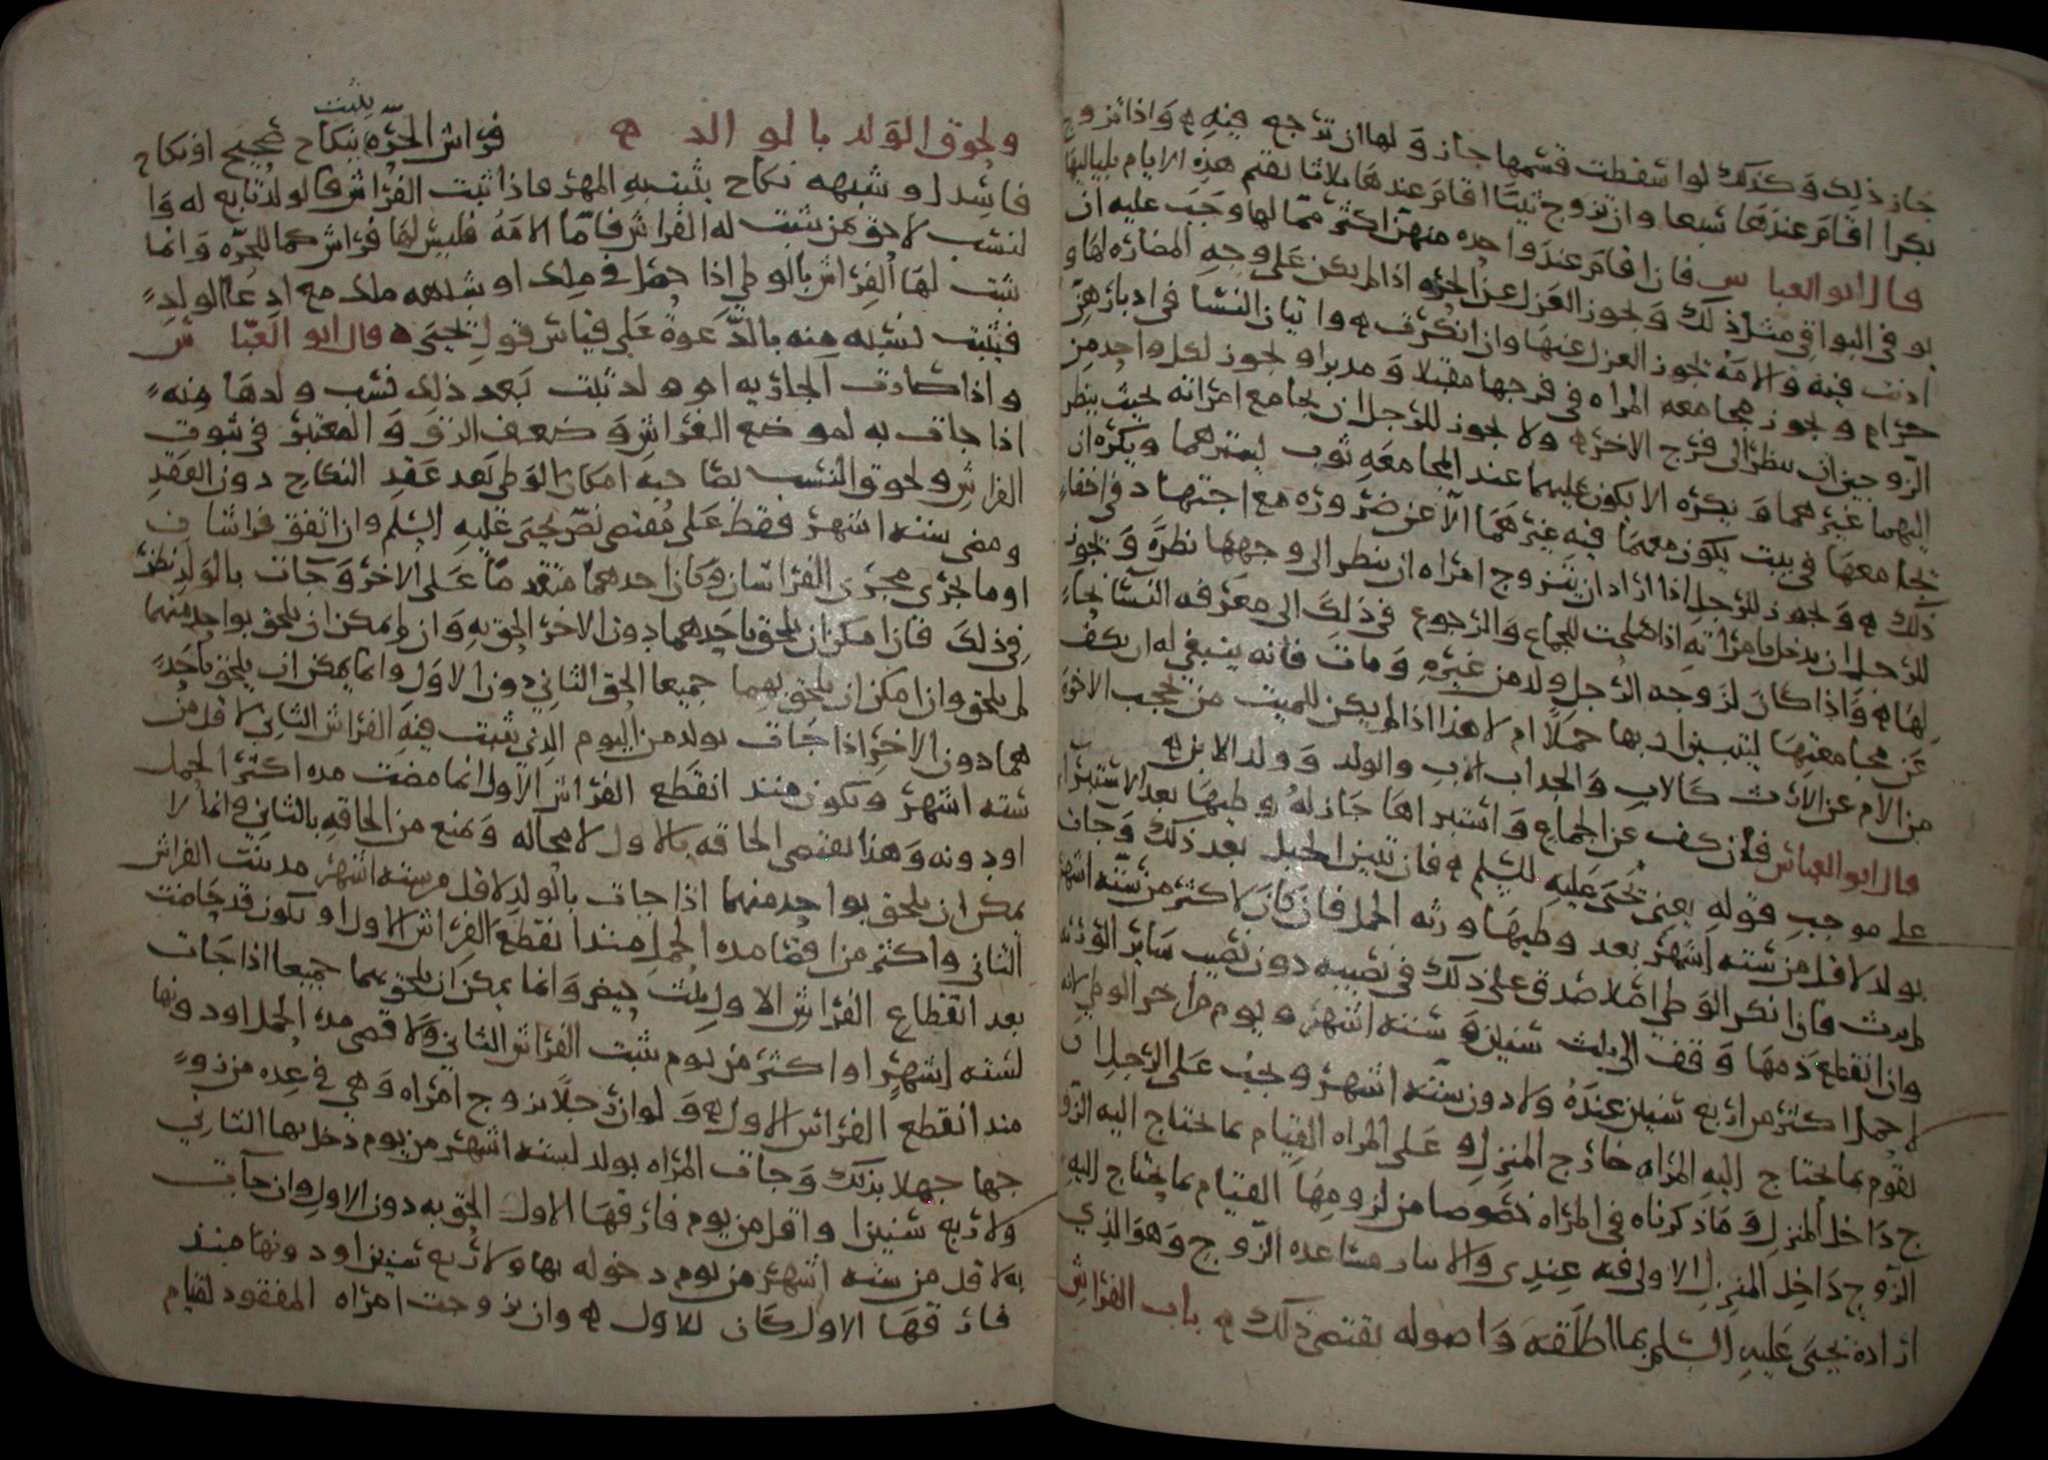 جاز ذلك وكذلك لو اسقطت قسمها جاز ولها ان ترجع فيه ه واذا تزوج
بكرا اقام عندها سبعا وان تزوج ثيبا اقام عندها ثلاثا يقسم هذه الايام بلياليها
قال ابو العباس فان اقام عند واحده منهن اكثر مما لها وجب عليه ان
يوفي البواقي مثل ذلك ويجوز العزل عن الحره اذا لم يكن على وجه المضاره لها و
اذنت فيه والامة يجوز العزل عنها وان انكرت ه واتيان النسا في ادبارهن
حرام ويجوز مجامعه المراه في فرجها مقبلا ومدبرا ويجوز لكل واحد من
الزوجين ان ينظر الى فرج الاخر ه ولا يجوز للرجل ان يجامع امراته بحيث ينظر
اليهما غيرهما ويكره الا يكون عليهما عند المجامعه ثوب يسترهما ويكره ان
يجامعها في بيت يكون معهما فيه غيرهما الا عن ضروره مع اجتهاد في اخفا
ذلك ه ويجوز للرجل اذا اراد ان يتزوج امراه ان ينظر الى وجهها نظرة ويجوز
للرجل ان يدخل بامراته اذا صلحت للجماع والرجوع في ذلك الى معرفه النسا بحا
لها ه واذا كان لزوجه الرجل ولد من غيره ومات فانه ينبغي له ان يكف
عن مجامعتها ليتبين ا بها حملا ام لا هذا اذا لم يكن للميت من يحجب الاخوة
من الام عن الارث كالاب والجد اب الاب والولد وولد الابن ه
قال ابو العباس فان كف عن الجماع واستبراها جاز له وطيها بعد الاستبرا
على موجب قوله يعني يحيى عليه السلم ه فان تبين الحبل بعد ذلك وجات
بولد لاقل من سته اشهر بعد وطيها ورثه الحمل فان كان لاكثر من سته اشهر
لم يرث فان انكر الوطي اصلا صدق على ذلك في نصيبه دون نصيب ساير الورثه
وان انقطع دمها وقف الى ثلث سنين وسته اشهر ويوم من اخر الوطي لانه
لا حمل اكثر من اربع سنين عنده ولا دون سته اشهر ويجب على الرجل ان
يقوم بما يحتاج اليه المراه خارج المنزل وعلى المراه القيام بما يحتاج اليه الزو
ج داخل المنزل وما ذكرناه في المراه خصوصا من لزومها القيام بما يحتاج اليه
الزوج داخل المنزل الاولى فيه عندي مساعده الزوج وهو الذي
اراده يحيى عليه السلم بما اطلقه واصوله يقتضي ذلك ه باب الفراش
ولحوق الولد بالوالد ه
يثبت
فراش الحره بنكاح صحيح او نكاح
فاسد او شبهه نكاح يثبت به المهر فاذا ثبت الفراش فالولد تابع له وا
لنسب لاحق بمن ثبت له الفراش فاما الامة فليس لها فراش كما للحره وانما
ثبت لها الفراش بالوطي اذا حصل في ملك او شبهه ملك مع ادعا الولد
فيثبت نسبه منه بالدعوة على قياس قول يحيى ه قال ابو العباس
واذا صارت الجاريه ام ولد ثبت بعد ذلك نسب ولدها منه
اذا جات به لموضع الفراش وضعف الرق والمعتبر في ثبوت
الفراش ولحوق النسب بصاحبه امكان الوطي بعد عقد النكاح دون العقد
ومضى سته اشهر فقط على مقتضى نص يحيى عليه السلم وان اتفق فراشان
او ما يجري مجرى الفراشان وكان احدهما متقدما على الاخر وجات بالولد نظر
في ذلك فان امكن ان يلحق باحدهما دون الاخر الحق به وان لم يمكن ان يلحق بواحد منهما
لم يلحق وان امكن ان يلحق بهما جميعا الحق الثاني دون الاول وانما يمكن ان يلحق باحد
هما دون الاخر اذا جات بولد من اليوم الذي ثبت فيه الفراش الثاني لاقل من
سته اشهر ويكون منذ انقطع الفراش الاول انما مضت مده اكثر الحمل
او دونه وهذا يقتضي الحاقه بالاول لا محاله ويمنع من الحاقه بالثاني وانما لا
يمكن ان يلحق بواحد منهما اذا جات بالولد لاقل من سته اشهر مذ ثبت الفراش
الثاني واكثر من اقصا مده الحمل منذ انقطع الفراش الاول او يكون قد حاضت
بعد انقطاع الفراش الاول ثلث حيض وانما يمكن ان يلحق بهما جميعا اذا جات
لسته اشهر او اكثر من يوم ثبت الفراش الثاني ولاقصى مده الحمل او دونها
منذ انقطع الفراش الاول ه ولو ان رجلا تزوج امراه وهي في عده من زو
جها جهلا بذلك وجات المراه بولد لسته اشهر من يوم دخل بها الثاني
ولاربع سنين او اقل من يوم فارقها الاول الحق به دون الاول وان جات
به لاقل من سته اشهر من يوم دخوله بها ولاربع سنين او دونها منذ
فارقها الاول كان للاول ه وان تزوجت امراه المفقود لقيام